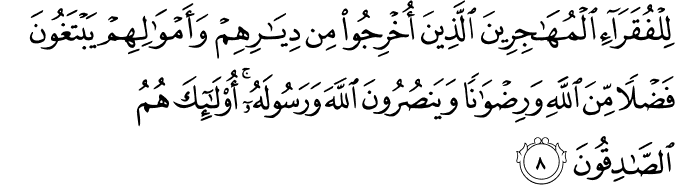 لِلْفُقَرَآءِ ٱلْمُهَـٰجِرِينَ ٱلَّذِينَ أُخْرِجُوا۟ مِن دِيَـٰرِهِمْ وَأَمْوَٰلِهِمْ يَبْتَغُونَ
فَضْلًا مِّنَ ٱللَّهِ وَرِضْوَٰنًا وَيَنصُرُونَ ٱللَّهَ وَرَسُولَهُۥٓ ۚ أُو۟لَـٰٓئِكَ هُمُ
ٱلصَّـٰدِقُونَ ٨